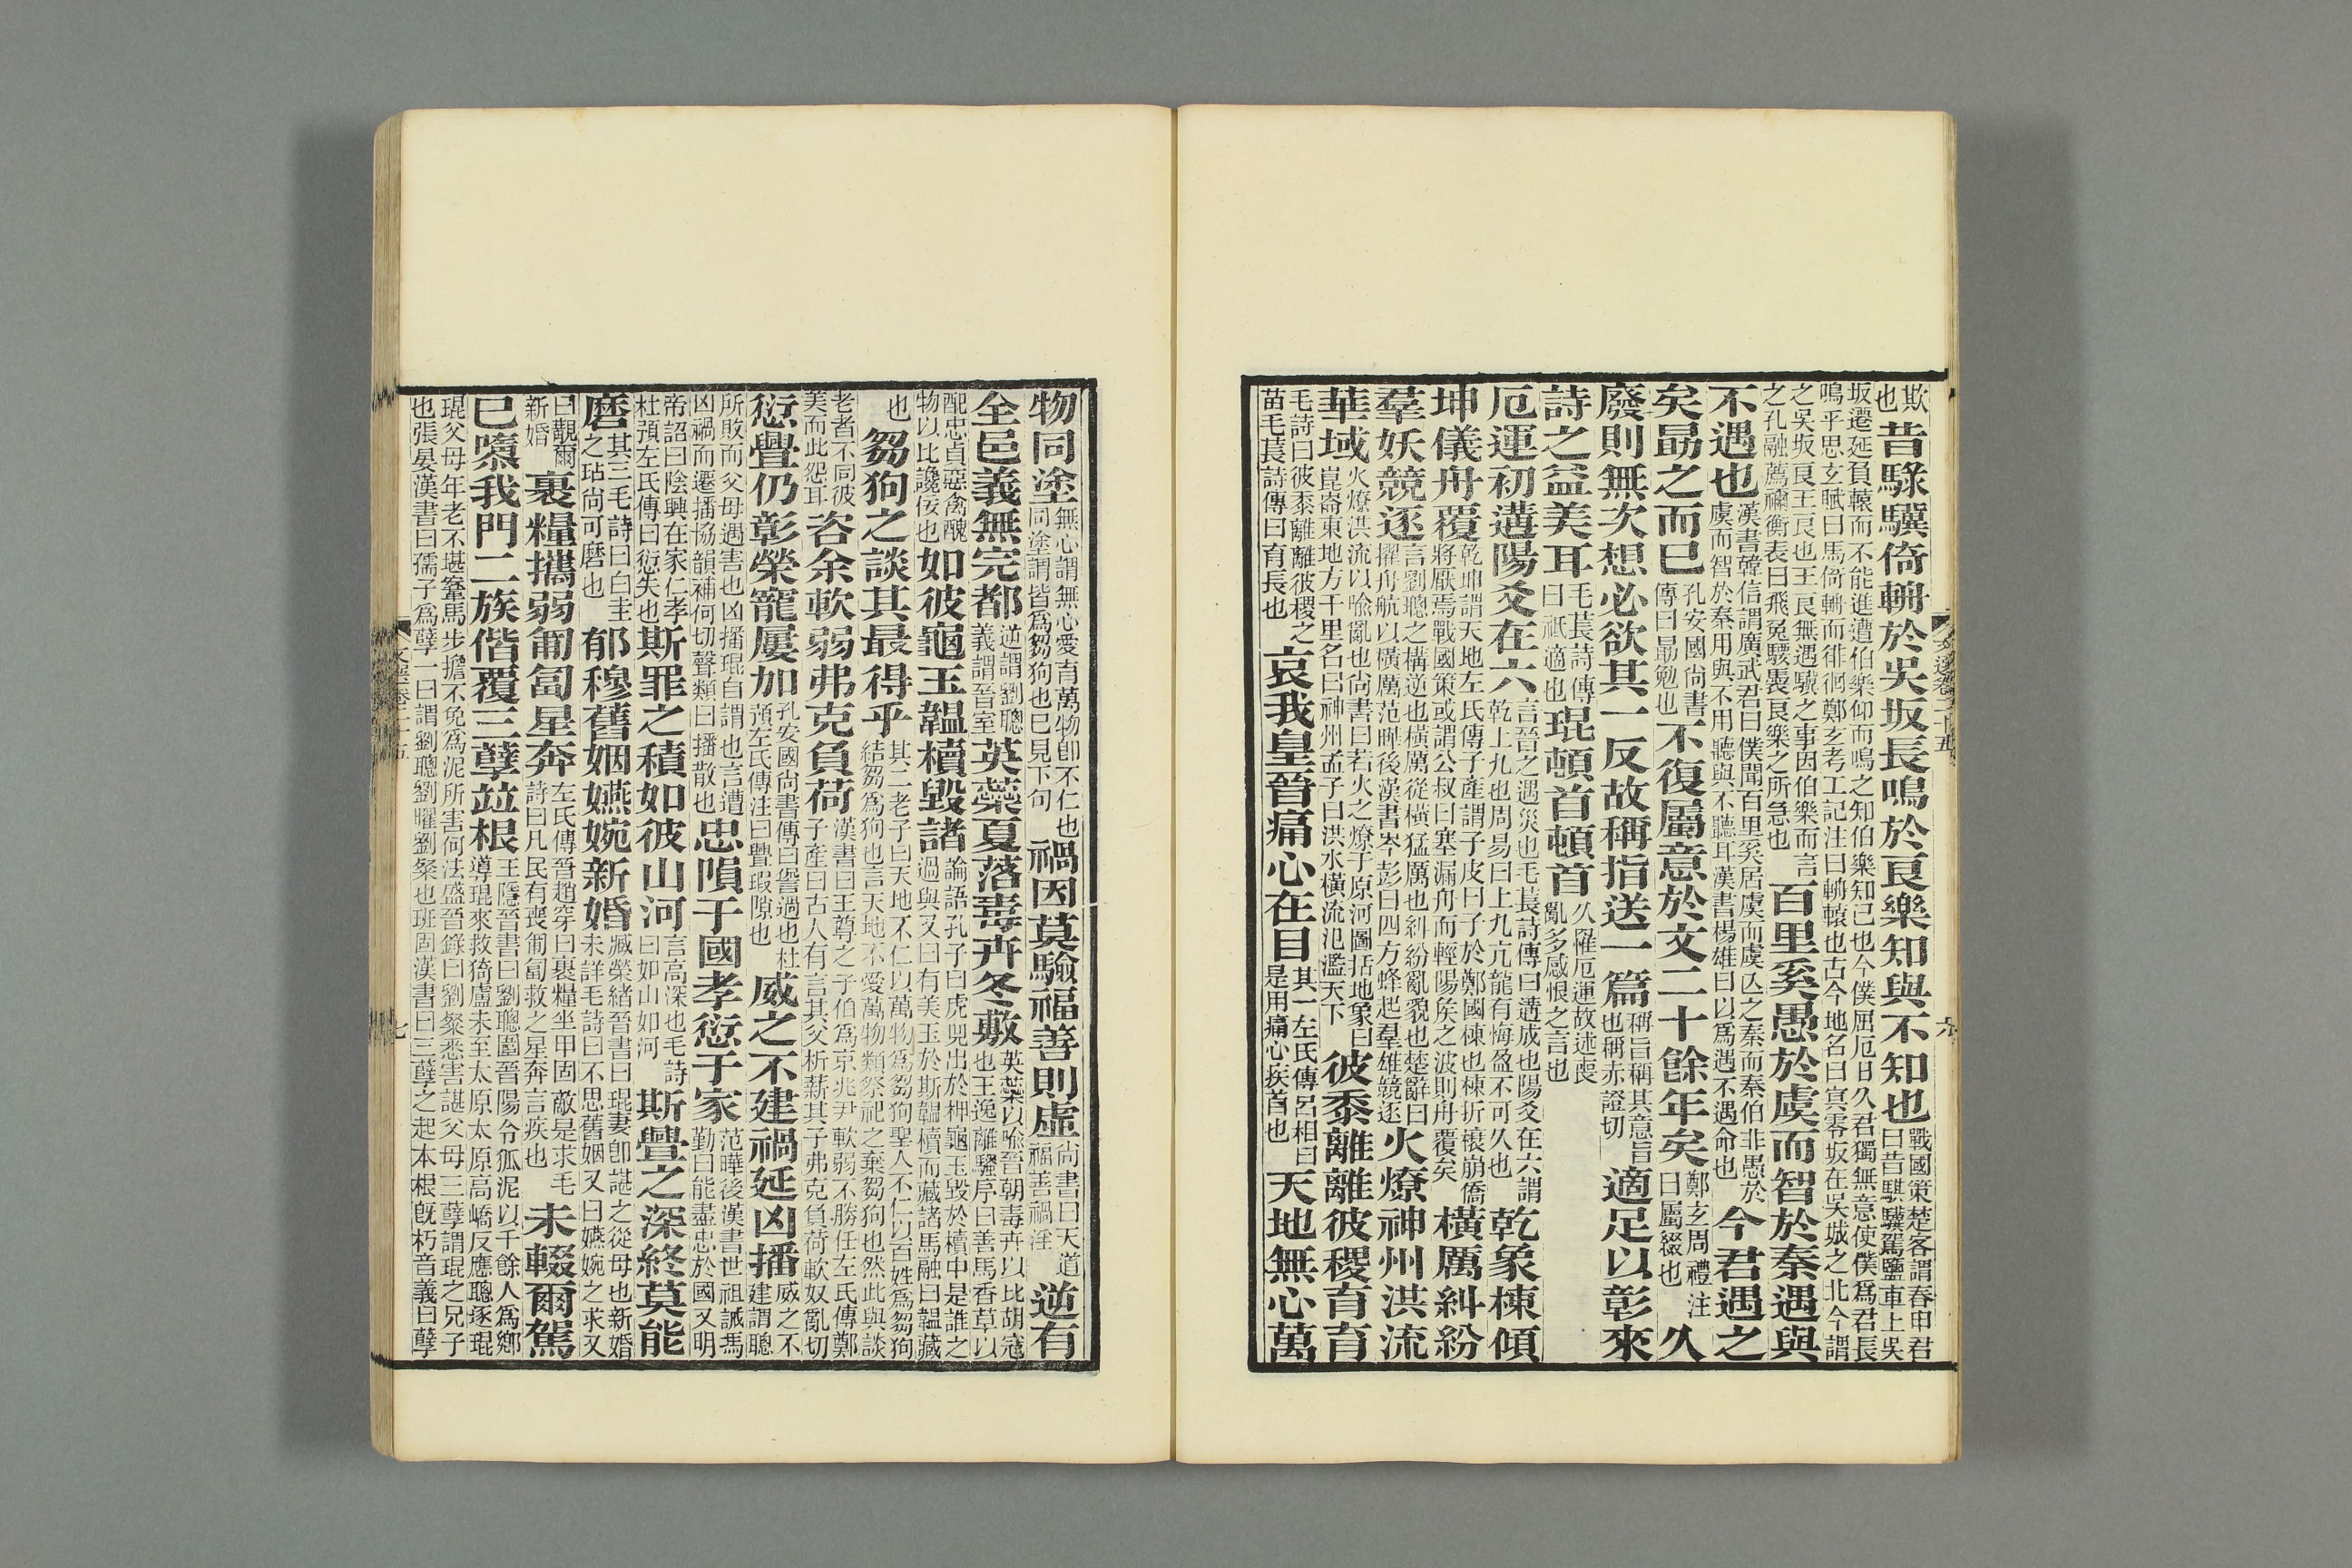 欺也昔騄驥倚輈於吳坂長鳴於良樂知與不知也戰國策楚客謂春申君曰昔騏驥駕鹽車上吳
坂遷延負轅而不能進遭伯樂仰而鳴之知伯樂知己也今僕屈厄日久君獨無意使僕爲君長鳴乎思玄賦曰馬倚輈而徘徊鄭玄考工記注曰輈轅也古今地名曰寘零坂在吳城之北今謂
之吳坂良王良也王良無遇驥之事因伯樂而言之孔融薦禰衡表曰飛兔騕褭良樂之所急也百里奚愚於虞而智於秦遇與
不遇也漢書韓信謂廣武君曰僕聞百里奚居虞而虞亾之秦而秦伯非愚於虞而智於秦用與不用聽與不聽耳漢書楊雄曰以爲遇不遇命也今君遇之
矣勗之而已孔安國尚書傳曰勗勉也不復屬意於文二十餘年矣鄭玄周禮注曰屬綴也久
廢則無次想必欲其一反故稱指送一篇稱旨稱其意旨也稱赤證切適足以彰來
詩之益美耳毛萇詩傳曰祇適也琨頓首頓首久罹厄運故述喪亂多感恨之言也
厄運初遘陽爻在六言晉之遇災也毛萇詩傳曰遘成也陽爻在六謂乾上九也周易曰上九亢龍有悔盈不可久也乾象棟傾
坤儀舟覆乾坤謂天地左氏傳子產謂子皮曰子於鄭國棟也棟折榱崩僑將厭焉戰國策或謂公叔曰塞漏舟而輕陽矦之波則舟覆矣橫厲糾紛
羣妖競逐言劉聰之構逆也橫厲從橫猛厲也糾紛亂貌也楚辭曰擢舟航以橫厲范曄後漢書岑彭曰四方蜂起羣雄競逐火燎神州洪流
華域火燎洪流以喻亂也尚書曰若火之燎于原河圖括地象曰崑崙東地方千里名曰神州孟子曰洪水橫流氾濫天下彼黍離離彼稷育育
毛詩曰彼黍離離彼稷之苗毛萇詩傳曰育長也哀我皇晉痛心在目其一左氏傳呂相曰是用痛心疾首也天地無心萬
文選卷二十五
六
物同塗無心謂無心愛育萬物卽不仁也同塗謂皆爲芻狗也已見下句禍因莫驗福善則虛尚書曰天道福善禍淫逆有
全邑義無完都逆謂劉聰義謂晉室英蘂夏落毒卉冬敷英蘂以喻晉朝毒卉以比胡寇也王逸離騷序曰善馬香草以
配忠貞惡禽醜物以比讒佞也如彼龜玉韞櫝毀諸論語孔子曰虎兕出於柙龜玉毀於櫝中是誰之過與又曰有美玉於斯韞櫝而藏諸馬融曰韞藏
也芻狗之談其最得乎其二老子曰天地不仁以萬物爲芻狗聖人不仁以百姓爲芻狗結芻爲狗也言天地不愛萬物類祭祀之棄芻狗也然此與談
老者不同彼美而此怨耳咨余軟弱弗克負荷漢書曰王尊之子伯爲京兆尹軟弱不勝任左氏傳鄭子產曰古人有言其父析薪其子弗克負荷軟奴亂切
愆舋仍彰榮寵屢加孔安國尚書傳曰諐過也杜預左氏傳注曰舋瑕隙也威之不建禍延凶播威之不建謂聰
所敗而父母遇害也凶播琨自謂也言遭凶禍而遷播協韻補何切聲類曰播散也忠隕于國孝愆于家范曄後漢書世祖誡馮勤曰能盡忠於國又明
帝詔曰陰興在家仁孝杜預左氏傳曰愆失也斯罪之積如彼山河言高深也毛詩曰如山如河斯舋之深終莫能
磨其三毛詩曰白圭之玷尚可磨也郁穆舊姻嬿婉新婚臧榮緒晉書曰琨妻卽諶之從母也新婚未詳毛詩曰不思舊姻又曰嬿婉之求又
曰覯爾新婚裹糧攜弱匍匐星奔左氏傳晉趙穿曰裹糧坐甲固敵是求毛詩曰凡民有喪匍匐救之星奔言疾也未輟爾駕
已隳我門二族偕覆三孽竝根王隱晉書曰劉聰圍晉陽令狐泥以千餘人爲鄉導琨來救猗盧未至太原太原高嶠反應聰逐琨
琨父母年老不堪鞌馬步擔不免爲泥所害何法盛晉錄曰劉粲悉害諶父母三孽謂琨之兄子也張晏漢書曰孺子爲孽一曰謂劉聰劉曜劉粲也班固漢書曰三孽之起本根旣朽音義曰孽
文選卷二十五
七